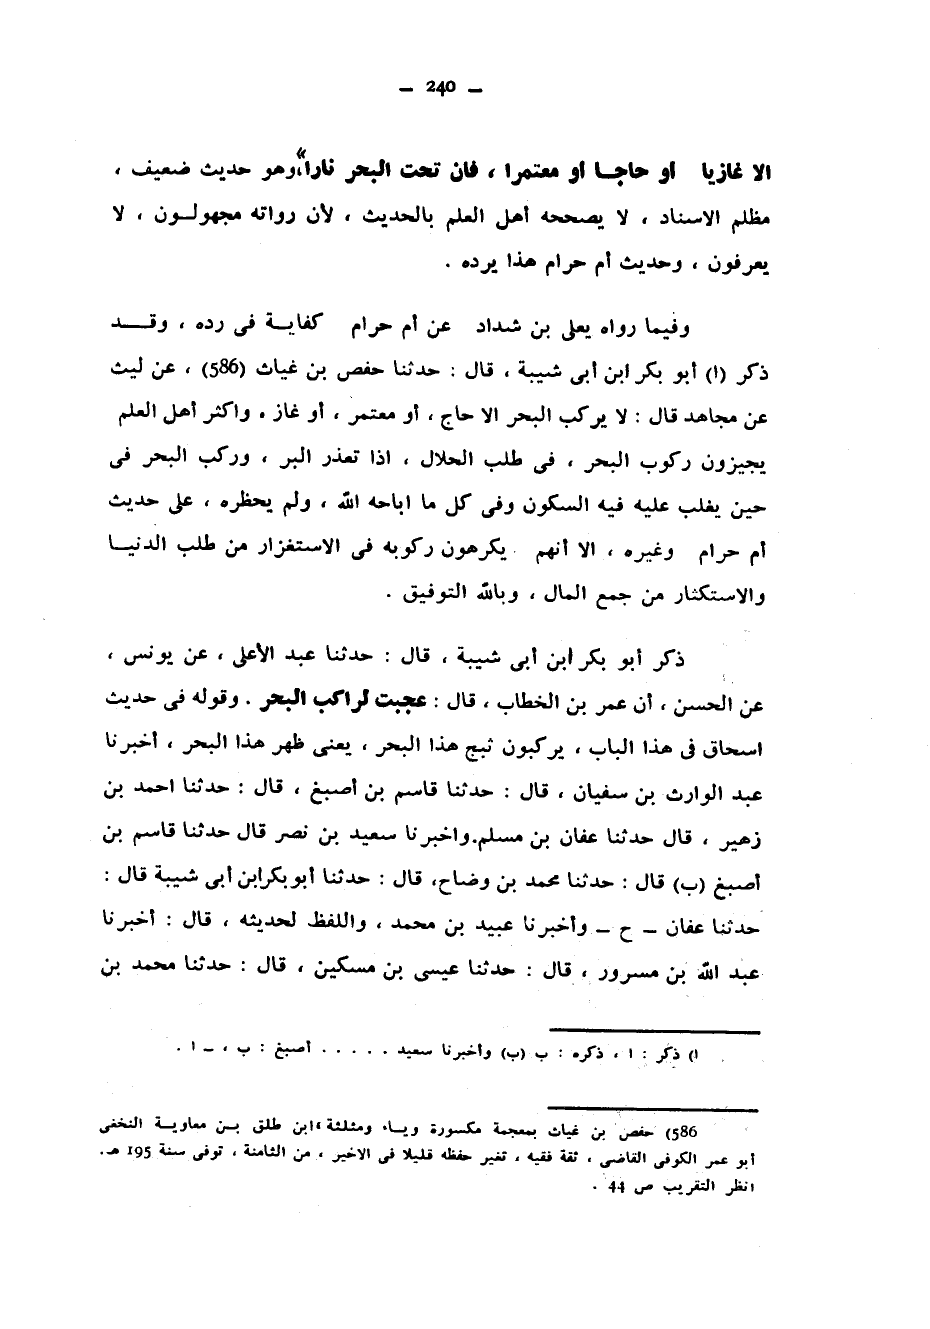 — 240 —
الا غازيا أو حاجـا أو معتمرا ، فان تحت البحر نارا»، وهو حديث ضعيف ،
مظلم الاسناد ، لا يصححه أهل العلم بالحديث ، لأن رواته مجهولـون ، لا
يعرفون ، وحديث أم حرام هذا يرده .
وفيما رواه يعلى بن شداد عن أم حرام كفايـة فى رده ، وقـــد
ذكر (ا) أبو بكر ابن أبى شيبة ، قال : حدثنا حفص بن غياث (586) ، عن ليث
عن مجاهد قال : لا يركب البحر الا حاج ، أو معتمر ، أو غاز . واكثر أهل العلم
يجيزون ركوب البحر ، فى طلب الحلال ، اذا تعذر البر ، وركب البحر فى
حين يغلب عليه فيه السكون وفى كل ما اباحه الله ، ولم يحظره ، على حديث
أم حرام وغيره ، الا أنهم يكرهون ركوبه فى الاستغزار من طلب الدنيـا
والاستكثار من جمع المال ، وبالله التوفيق .
ذكر أبو بكر ابن أبى شيبة ، قال : حدثنا عبد الأعلى ، عن يونس ،
عن الحسن ، أن عمر بن الخطاب ، قال : عجبت لراكب البحر . وقوله فى حديث
اسحاق فى هذا الباب ، يركبون ثبج هذا البحر ، يعنى ظهر هذا البحر ، أخبرنا
عبد الوارث بن سفيان ، قال : حدثنا قاسم بن أصبغ ، قال : حدثنا احمد بن
زهير ، قال حدثنا عفان بن مسلم. واخبرنا سعيد بن نصر قال حدثنا قاسم بن
أصبغ (ب) قال : حدثنا محمد بن وضاح، قال : حدثنا أبو بكر ابن أبى شيبة قال :
حدثنا عفان – ح – وأخبرنا عبيد بن محمد ، واللفظ لحديثه ، قال : أخبرنا
عبد الله بن مسرور ، قال : حدثنا عيسى بن مسكين ، قال : حدثنا محمد بن
ا) ذكر : ا ، ذكره : ب (ب) وأخبرنا سعيد . . . . . أصبغ : ب ، – ا .
586) حفص بن غياث بمعجمة مكسورة ويـاء ومثلثة ، ابن طلق بـن معاويـة النخعى
أبو عمر الكوفى القاضى ، ثقة فقيه ، تغير حفظه قليلا فى الاخير ، من الثامنة ، توفى سنة 195 هـ.
انظر التقريب ص 44 .